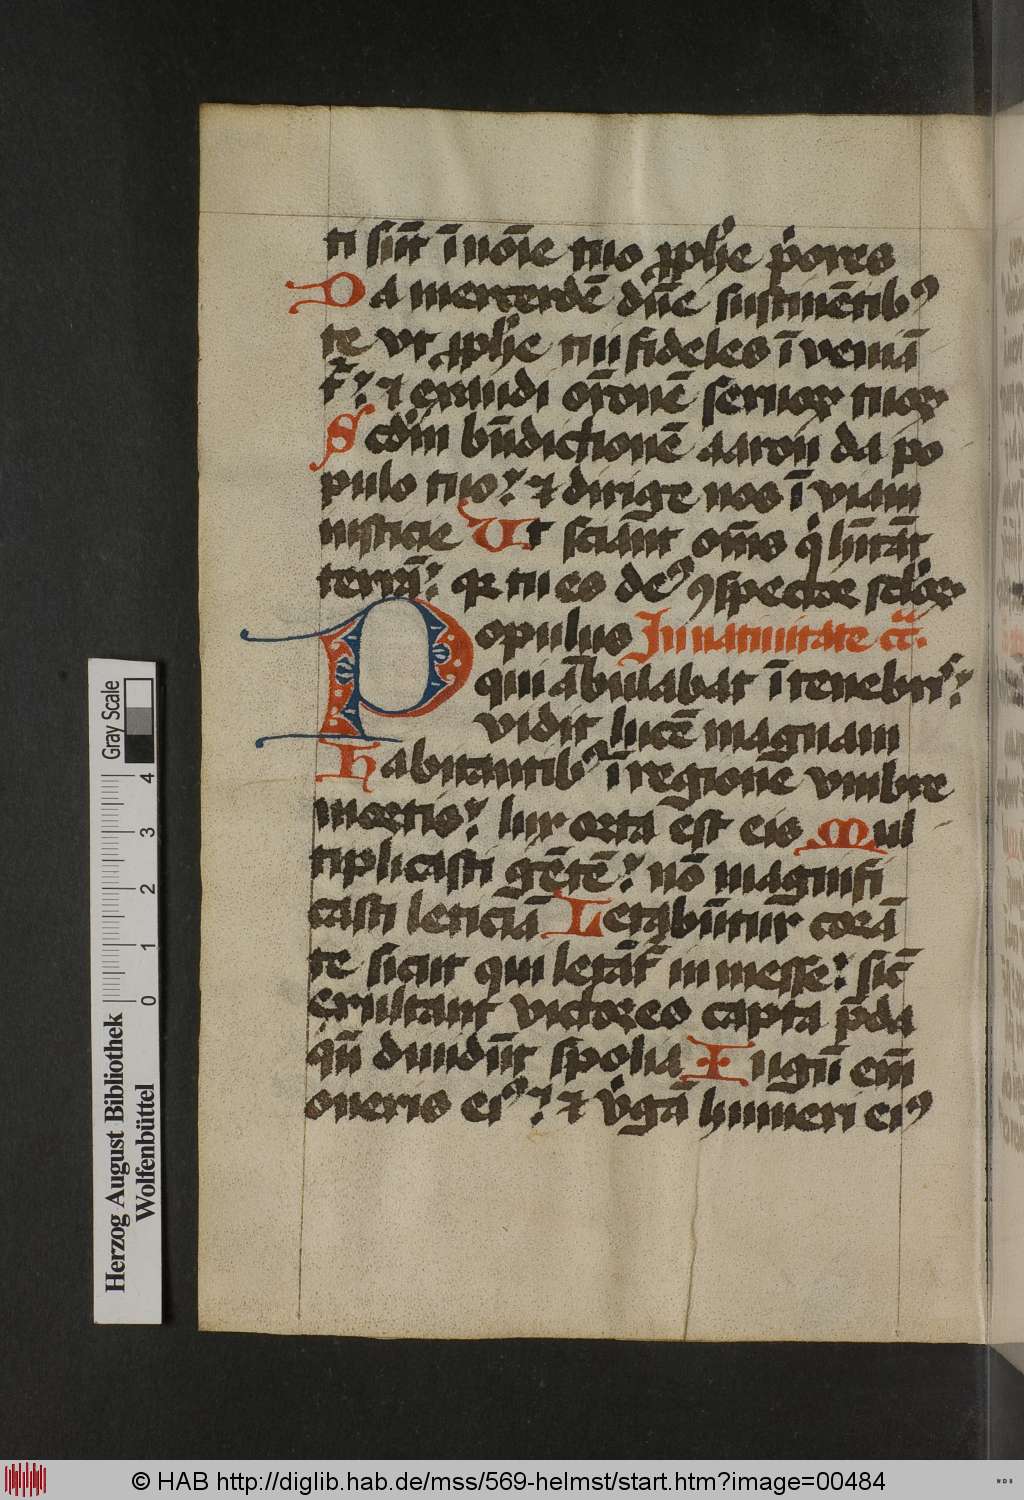 ti sūt ī noīe tuo ꝓph̄e p̓ores
Da mercedē dn̄e sustinētibꝰ
te vt ꝓph̄e tui fideles īveniā
t᷑? ⁊ exaudi or̄onē seruoꝝ tuoꝝ
Scdm̄ bn̄dictionē aaron da po
pulo tuo? ⁊ dirige nos ī viam
iusticie Ut sciāt om̄s q̇ hītāt
terrā? qꝛ tu es deꝰ ꝯspector sclōꝝ
Populus In natiuitate
qui ābulabat ī tenebris?
vidit lucē magnam
Habitantibꝰ ī regione vmbre
mortis? lux orta est eis Mul
tiplicasti gētē? nō magnifi
casti leticiā Letabūtur corā
te sicut qui letāt᷑ in messe? sic̄
exultant victores capta p̄da
qn̄ diuidūt spolia Iugū em̄
oneris eiꝰ? ⁊ v̓gā humeri eiꝰ
Gray Scale
4 3 2 1 0
Herzog August Bibliothek
Wolfenbüttel
© HAB http://diglib.hab.de/mss/569-helmst/start.htm?image=00484